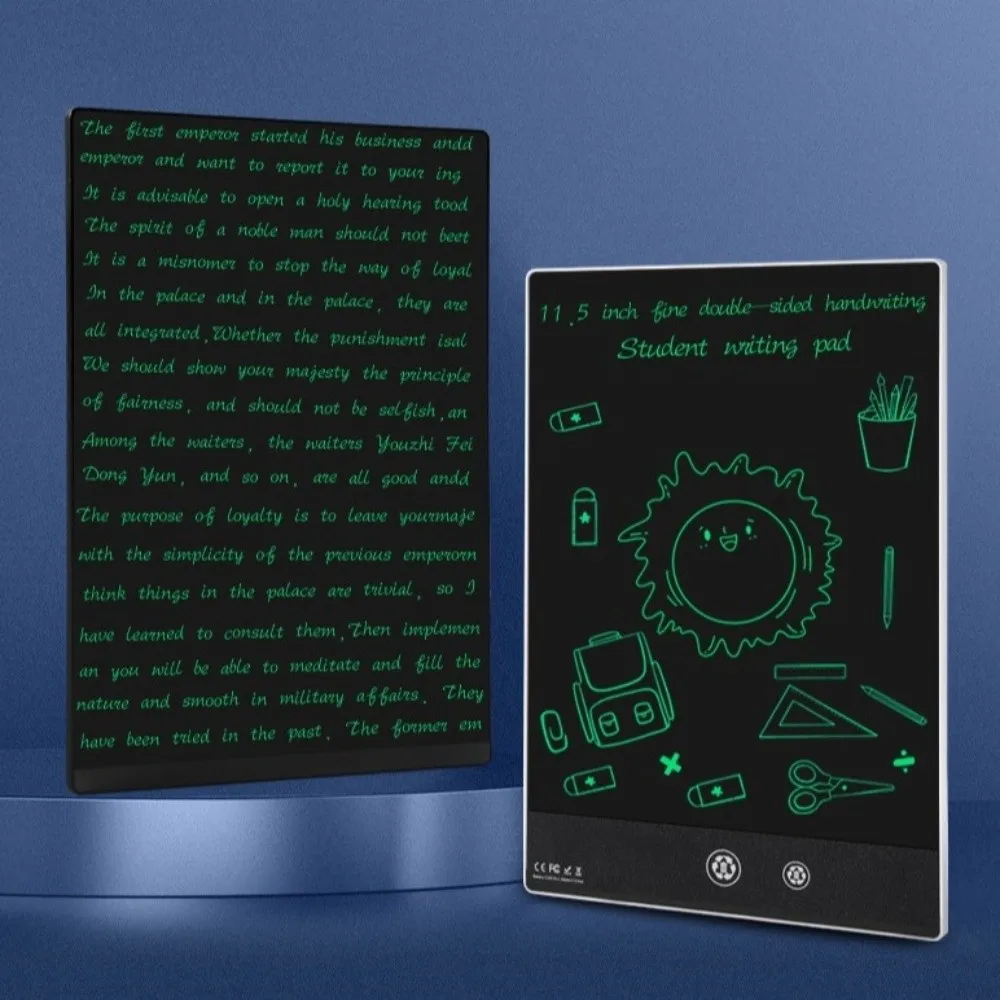 The first emperor started his business andd
emperor and want to report it to your ing
It is advisable to open a holy hearing tood
The spirit of a noble man should not beet
It is a misnomer to stop the way of loyal
In the palace and in the palace, they are
all integrated,Whether the punishment isal
We should show your majesty the principle
of fairness, and should not be selfish,an
Among the waiters, the waiters Youzhi Fei
Dong Yun, and so on, are all good andd
The purpose of loyalty is to leave yourmaje
with the simplicity of the previous emperorn
think things in the palace are trivial, so I
have learned to consult them,Then implemen
an you will be able to meditate and fill the
nature and smooth in military affairs. They
have been tried in the past. The former em
11.5 inch fine double-sided handwriting
Student writing pad
CE FC